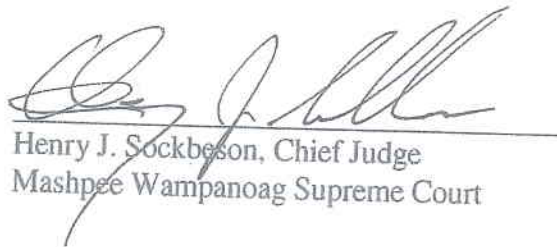 Henry J. Sockbeson, Chief Judge
Mashpee Wampanoag Supreme Court